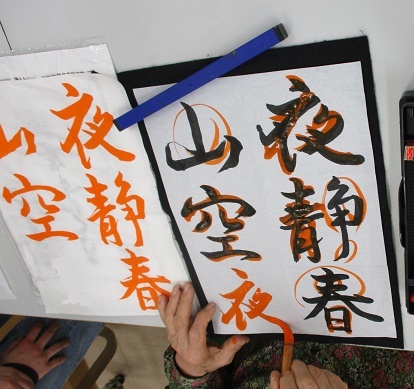 夜静春
山空
夜静春
山空
夜